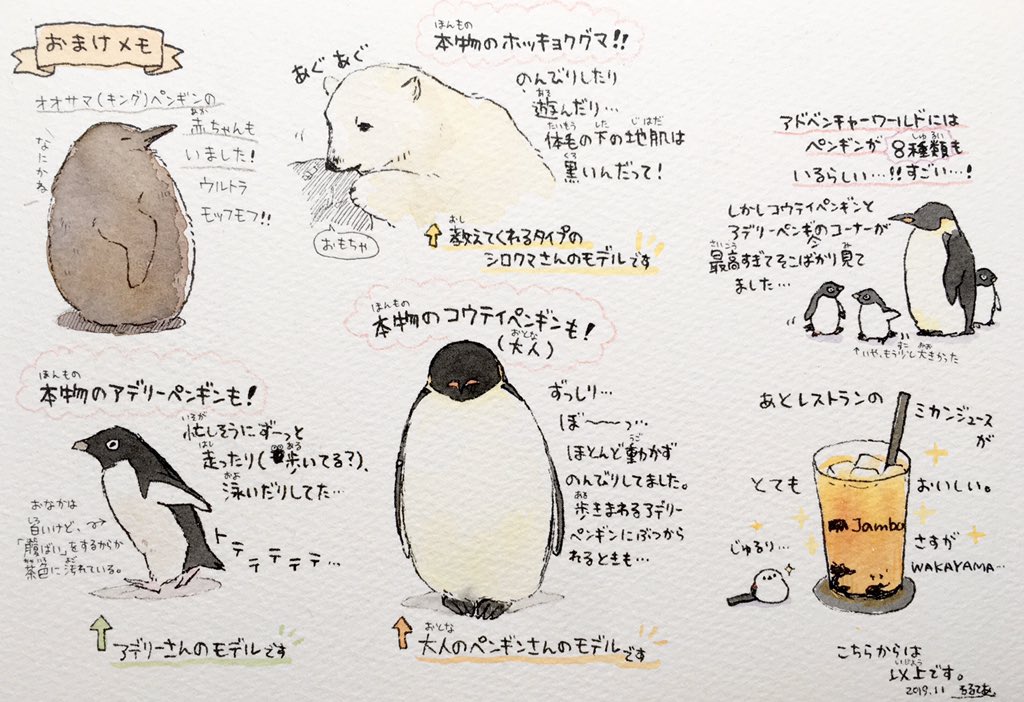 おまけメモ
オオサマ(キング)ペンギンの
赤ちゃんも
いました!
ウルトラ
モッフモフ!!
なにかね
本物のホッキョクグマ!!
あぐ あぐ
のんびりしたり
遊んだり…
体毛の下の地肌は
黒いんだって!
おもちゃ
教えてくれるタイプの
シロクマさんのモデルです
アドベンチャーワールドには
ペンギンが 8種類も
いるらしい…!!すごい…!
しかしコウテイペンギンと
アデリーペンギンのコーナーが
最高すぎてそこばかり見て
ました…
↑いや、もう少し大きかった
本物のアデリーペンギンも!
忙しそうにずーっと
走ったり(歩いてる?)、
泳いだりしてた…
おなかは
白いけど、
「腹ばい」をするからか
茶色に汚れている。
トテテテテテ…
アデリーさんのモデルです
本物のコウテイペンギンも!
(大人)
ずっしり…
ぼ〜〜っ…
ほとんど動かず
のんびりしてました。
歩きまわるアデリー
ペンギンにぶつから
れるときも…
大人のペンギンさんのモデルです
あとレストランの
ミカンジュース
が
とても
おいしい。
Jambo
じゅるり…
さすが
WAKAYAMA…
こちらからは
以上です。
2019.11